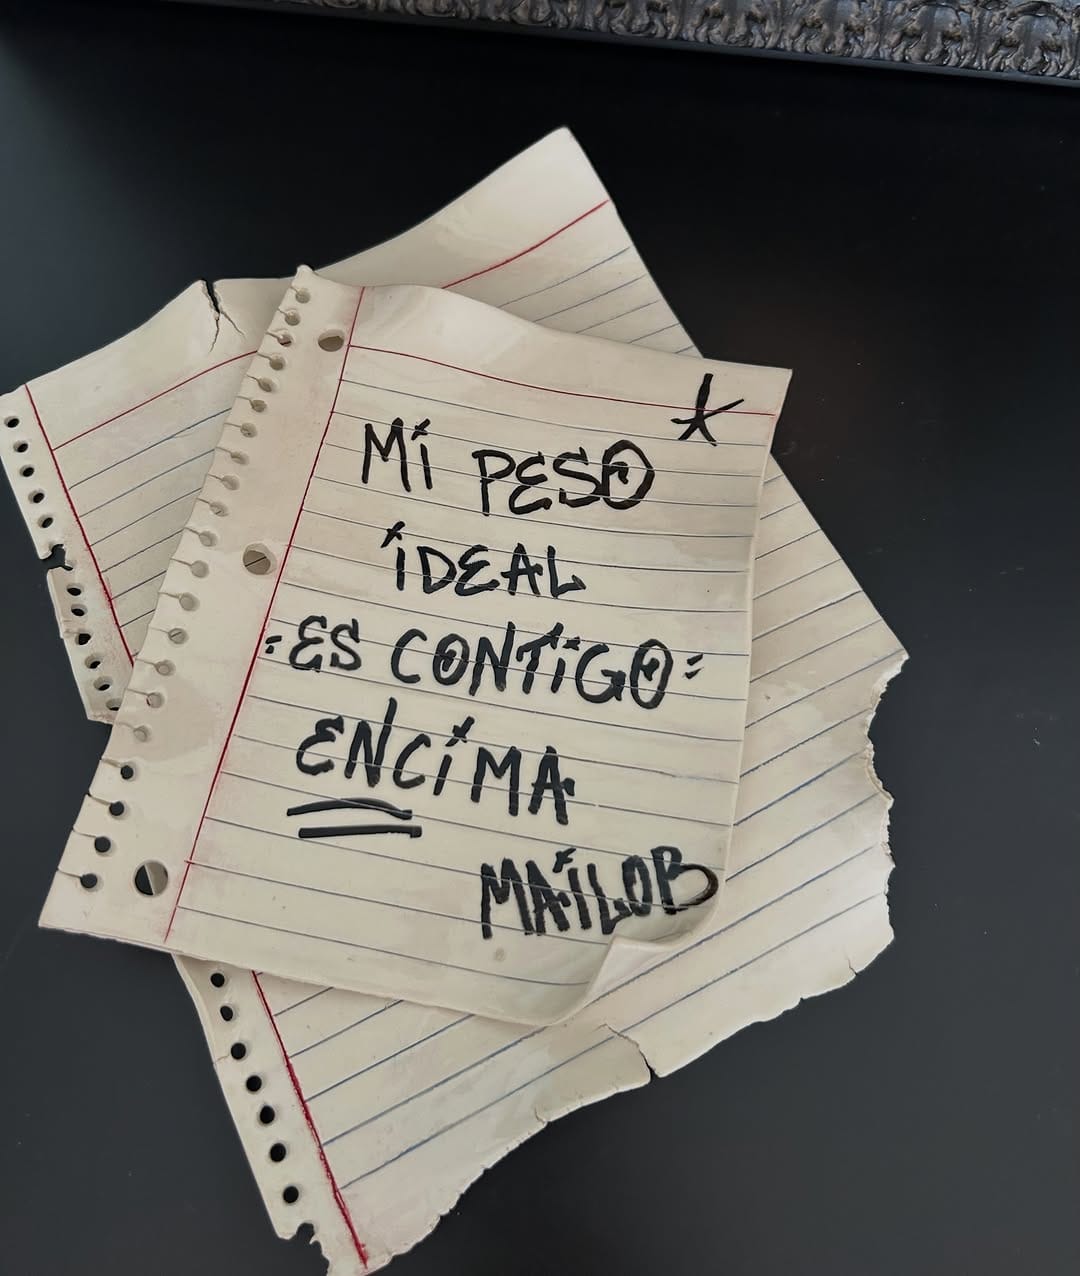 Mi PESO
iDEAL
ES CONTiGO
ENCiMA
MAiLOB